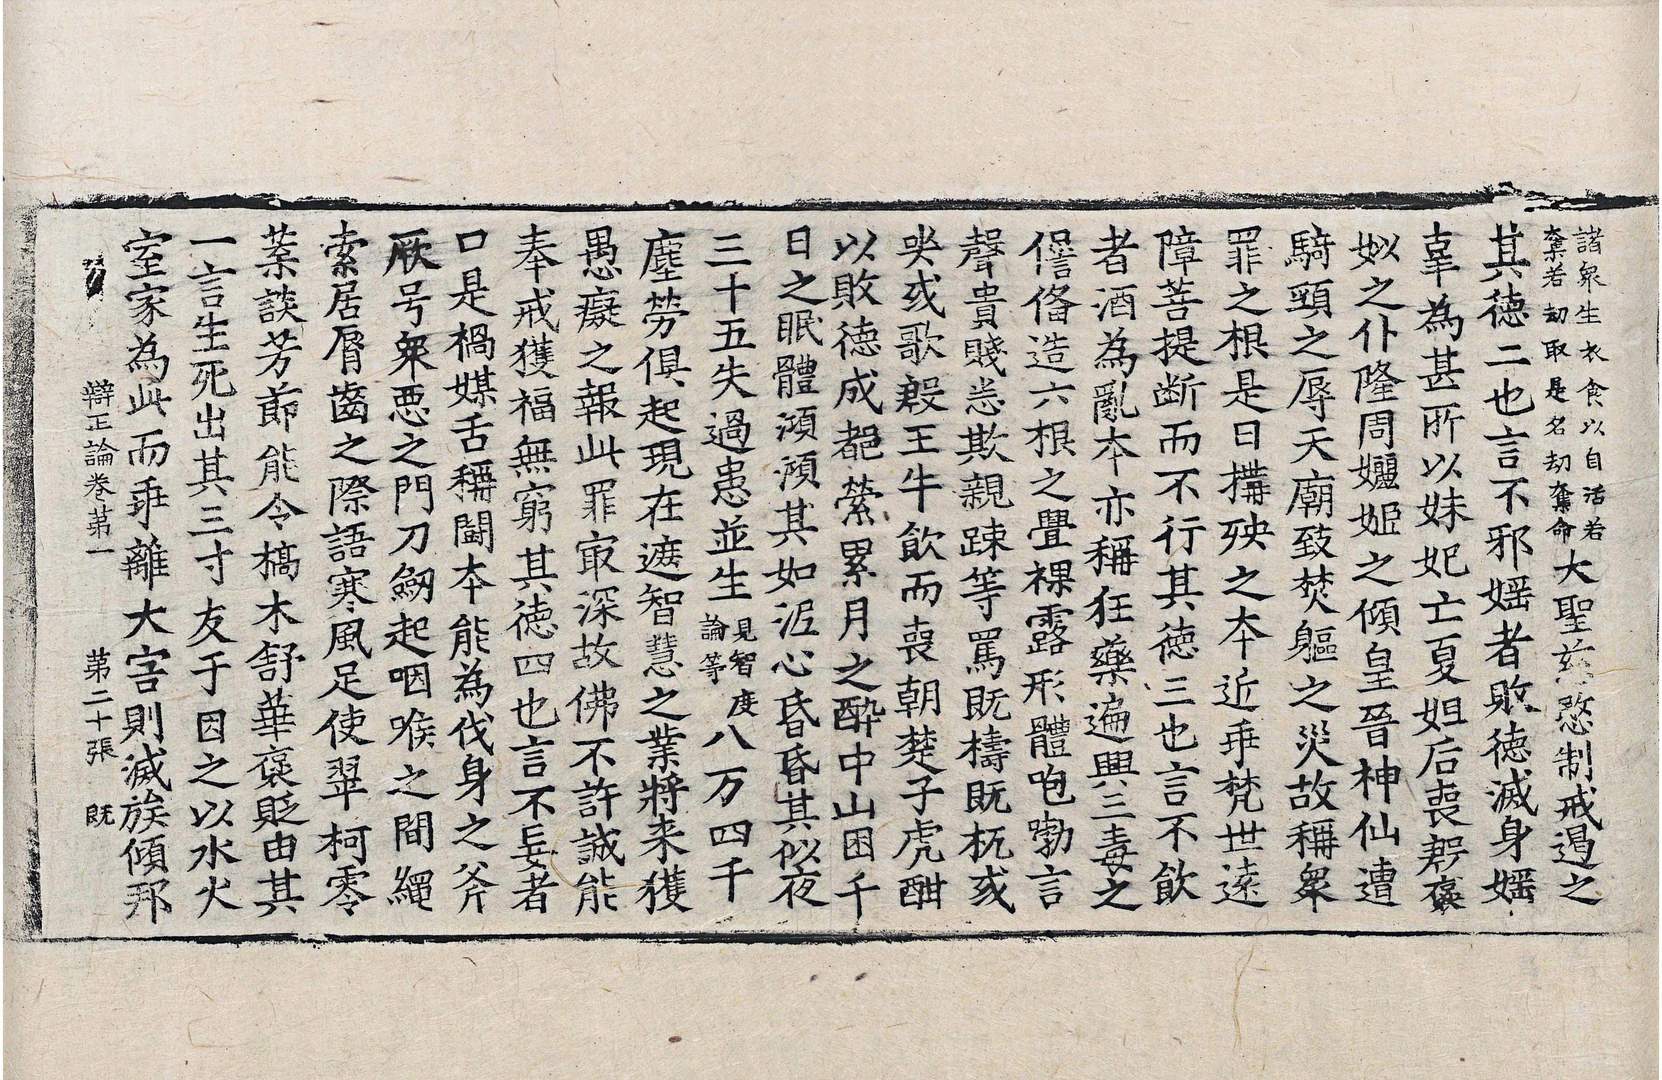 諸衆生衣食以自活若
奪若刧取是名刧奪命
大聖慈愍制戒遏之
其德二也言不邪婬者敗德滅身婬
辜為甚所以妹妃亡夏妲后喪
姒之仆隆周孋姬之傾皇晉神仙遭
騎頸之辱天廟致焚軀之災故稱衆
罪之根是曰搆殃之夲近乖梵世遠
障菩提断而不行其德三也言不飲
者酒為亂夲亦稱狂藥遍興三毒之
造六根之疊裸露形體咆勃言
聲貴賤恙欺親踈等罵既檮既杌或
㖈或歌殷王牛飲而喪朝楚子虎酣
以敗德成都縈累月之酔中山困千
日之眠體澒澒其如泥心昏昏其似夜
三十五失過患並生
見智度
論等
八万四千
塵勞俱起現在遮智慧之業將来獲
愚癡之報此罪㝡深故佛不許誠能
奉戒獲福無窮其德四也言不妄者
口是禍媒舌稱鬪夲能為伐身之斧
厥号衆悪之門刀劒起咽喉之間繩
索居脣齒之際語寒風足使翠柯零
葉談芳節能令槁木舒華褒貶由其
一言生死出其三寸友于因之以水火
室家為此而乖離大害則滅族傾邦
辯正論卷第一　第二十張　既